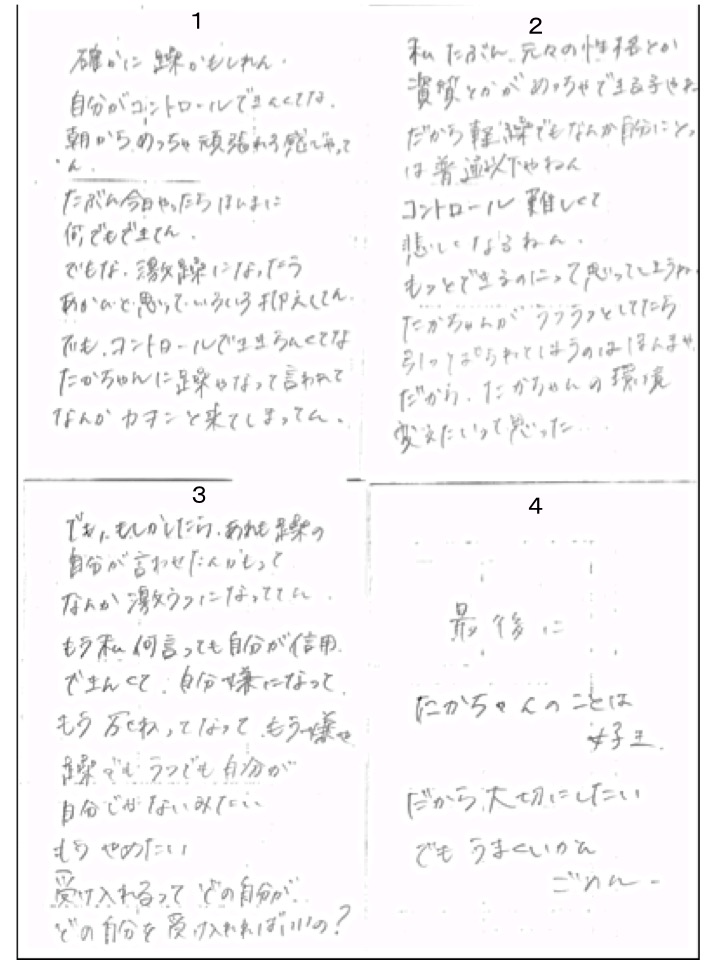 1
確かに躁かもしれん.
自分がコントロールできんくてな.
朝からめっちゃ頑張れる感じやって
ん.
たぶん今日やったらほんまに
何でもできてん.
でもな、激躁になったら
あかんと思っていろいろ抑えてん.
でも、コントロールできませんくてな
たかちゃんに躁やなって言われて
なんかカチンと来てしまってん.
2
私たぶん、元々の性格とか
資質とかがめっちゃできる子やね
だから軽躁でもなんか自分にとっ
は普通以下やねん
コントロール難しくて
悲しくなるねん.
もっとできるのにって思ってしまうね
たかちゃんがウツウツとしてたら
引っぱられてしまうのはほんまや
だから、たかちゃんの環境
変えたいって思った...
3
でも、もしかしたら、あれも躁の
自分が言わせたんかもって
なんか激ウツになっててん.
もう私何言っても自分が信用
できんくて、自分嫌になって
もう死ねってなって もう嫌や
躁でもうつでも自分が
自分でがないみたい
もうやめたい
受け入れるって どの自分が
どの自分を受け入れればいいの?
4
最後に
たかちゃんのことは
好き.
だから大切にしたい
でもうまくいかん
ごめん.